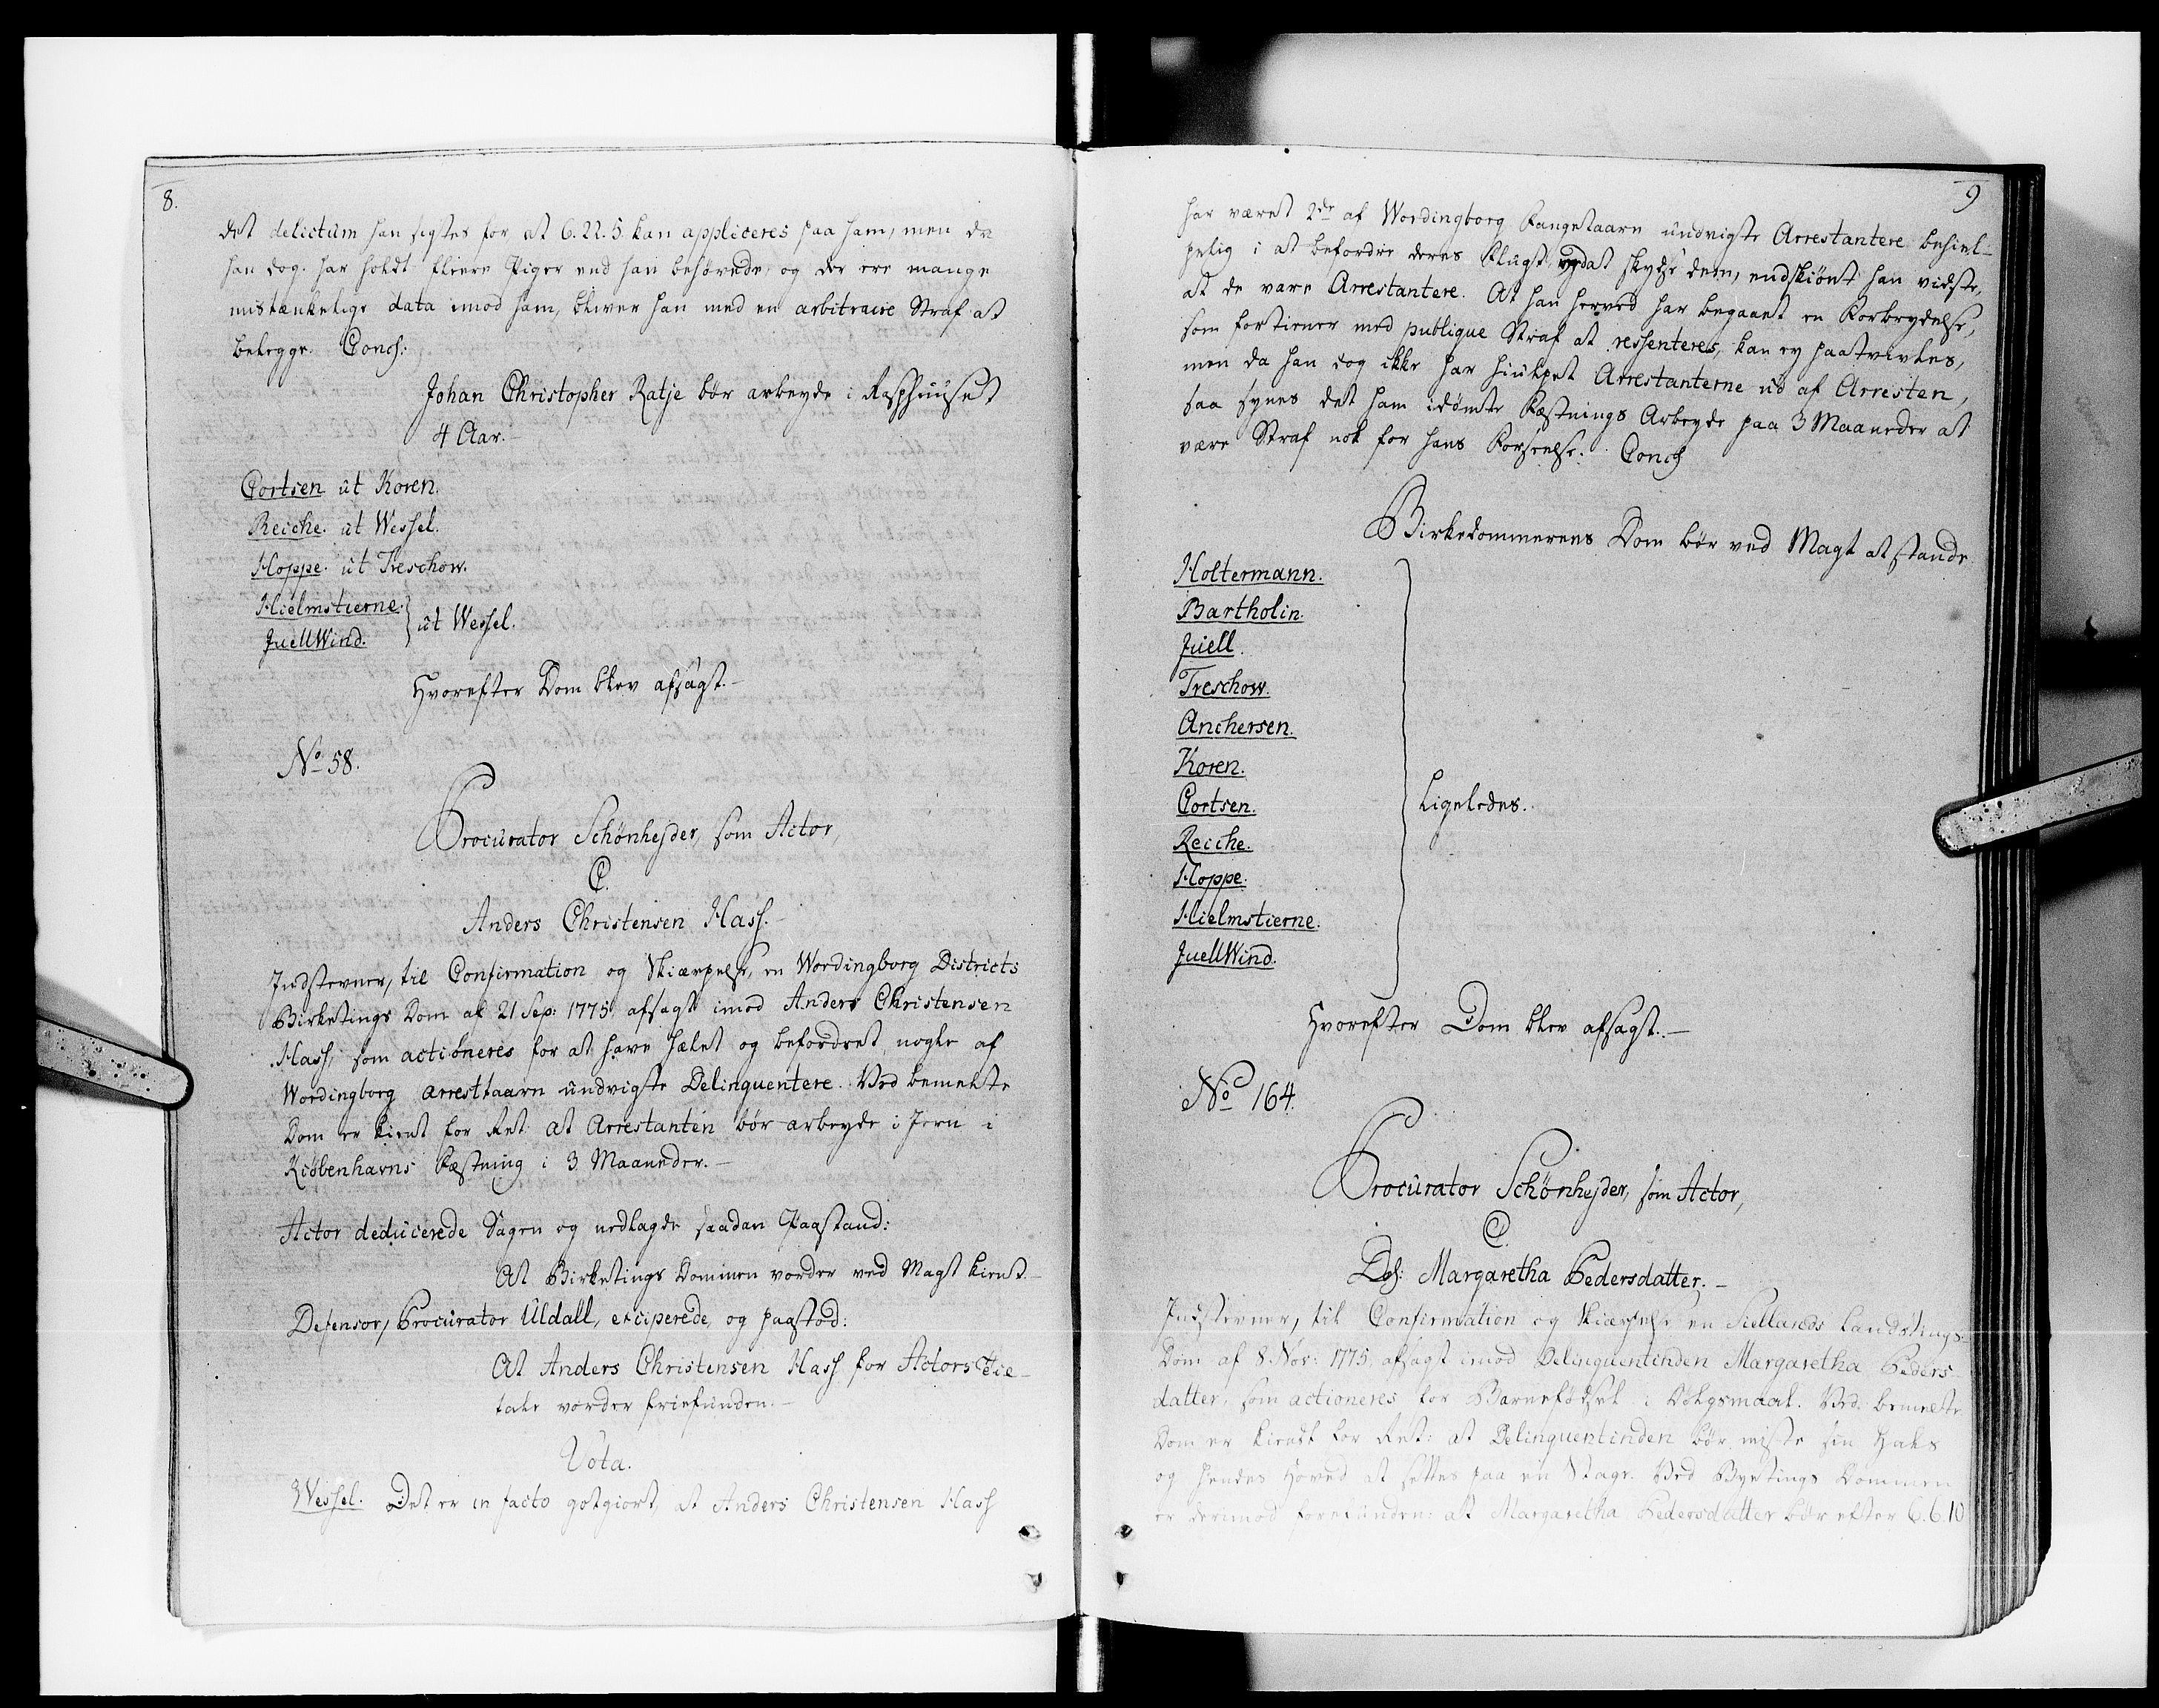 8.
det delictum han sigtes for at 6.22.5 kan appliceres paa ham, men da
han dog har holdt fleere Piger end han behøvede, og der ere mange
mistænkelige data imod ham, bliver han med en arbitraire Straf at
belegge. Concl:
Johan Christopher Ratje bør arbeyde i Rasphuuset
4 Aar.
Cortsen ut Koren.
Reiche. ut Wessel.
Hoppe. ut Treschow.
Hielmstierne.
JuellWind. } ut Wessel.
Hvorefter Dom blev afsagt.
No 58.
Procurator Schønheyder, som Actor,
C.
Anders Christensen Hass.
Indstevner, til Confirmation og Skiærpelse, en Wordingborg Districts
Birketings Dom af 21 Sep: 1775 afsagt imod Anders Christensen
Hass, som actioneres for at have hælet og befordret nogle af
Wordingborg Arresttaarn undvigte Delinquentere. Ved bemelte
Dom er kiendt for Ret: at Arrestanten bør arbeyde i Jern i
Kiøbenhavns Fæstning i 3 Maaneder.
Actor deducerede Sagen og nedlagde saadan Paastand:
At Birketings Dommen vorder ved Magt kiendt
Defensor, Procurator Uldall, exciperede, og paastod:
At Anders Christensen Hass for Actors Til-
tale vorder friefunden.
Vota.
Wessel. Det er in facto gotgiort, at Anders Christensen Hass
9
har været 2de af Wordingborg Fangetaarn undvigte Arrestantere behielp-
pelig i at befordre deres Flugt, og at skydse dem, endskiønt han vidste,
at de vare Arrestantere. At han herved har begaaet en Forbrydelse,
som fortiener med publique Straf at ressenteres, kan ey paatvivles,
men da han dog ikke har hiulpet Arrestanterne ud af Arresten,
saa synes det ham idømte Fæstnings Arbeyde paa 3 Maaneder at
være Straf nok for hans Forseelse. Concl
Birkedommerens Dom bør ved Magt at stande
Holtermann.
Bartholin.
Juell.
Treschow.
Anchersen.
Koren.
Cortsen. Ligeledes.
Reiche.
Hoppe.
Hielmstierne.
JuellWind.
Hvorefter Dom blev afsagt.
No 164.
Procurator Schønheyder, som Actor,
C.
Margaretha Pedersdatter.
Indstevner, til Confirmation og Skiærpelse en Siellands Landstings-
Dom af 8 Nov: 1775, afsagt imod Delinquentinden Margaretha Peders-
datter, som actioneres for Barnefødsel i Dølgsmaal. Ved bemelte
Dom er kiendt for Ret: at Delinquentinden bør miste sin Hals
og hendes Hoved at settes paa en Stage. Ved Byetings Dommen
er derimod forefunden: at Margaretha Pedersdatter bør efter 6.6.10